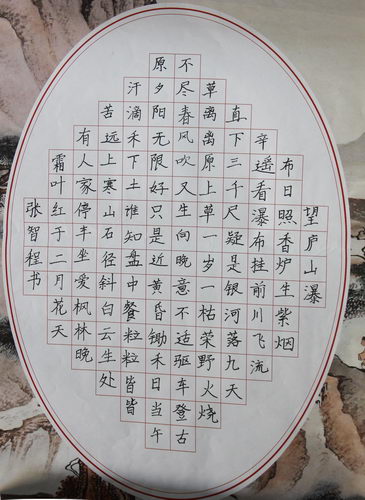 望庐山瀑
布日照香炉生紫烟
辛遥看瀑布挂前川飞流
直下三千尺疑是银河落九天
草离离原上草一岁一枯荣野火烧
不尽春风吹又生向晚意不适驱车登古
原夕阳无限好只是近黄昏锄禾日当午
汗滴禾下土谁知盘中餐粒粒皆皆
苦远上寒山石径斜白云生处
有人家停车坐爱枫林晚
霜叶红于二月花天
张智程书